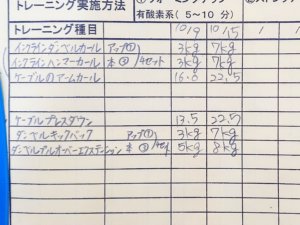 トレーニング実施方法
有酸素系(5〜10 分)
トレーニング種目 10/9 10/15 / /
インクラインダンベルカール アップ① 3kg 7kg
インクラインハンマーカール 本③/4セット 3kg 7kg
ケーブルアームカール 16.0 22.5
ケーブルプレスダウン 13.5 22.5
ダンベルキックバック アップ① 3kg 7kg
ダンベルプルオーバーエクステンション 本③/4セット 5kg 8kg